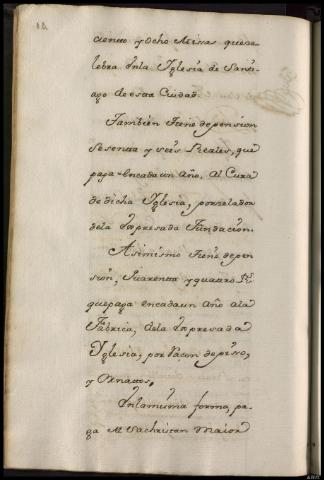 ciento y Ocho Missas quese ce-
lebra Enla Yglesia de Santi-
ago de esta Ciudad.
Tambien tiene de pension
Sesenta y seis Reales, que
paga encada un año, al Cura
de dicha Yglesia, por celador
dela Expresada Fundacion.
Asimismo tiene de pen-
sion, Quarenta y quattro Rs.
que paga encada un año ala
Fabrica, dela Expresada
Yglesia, por razon de piso,
y Ornattos,
Enlamisma forma, pa-
ga al Sachristan Maior